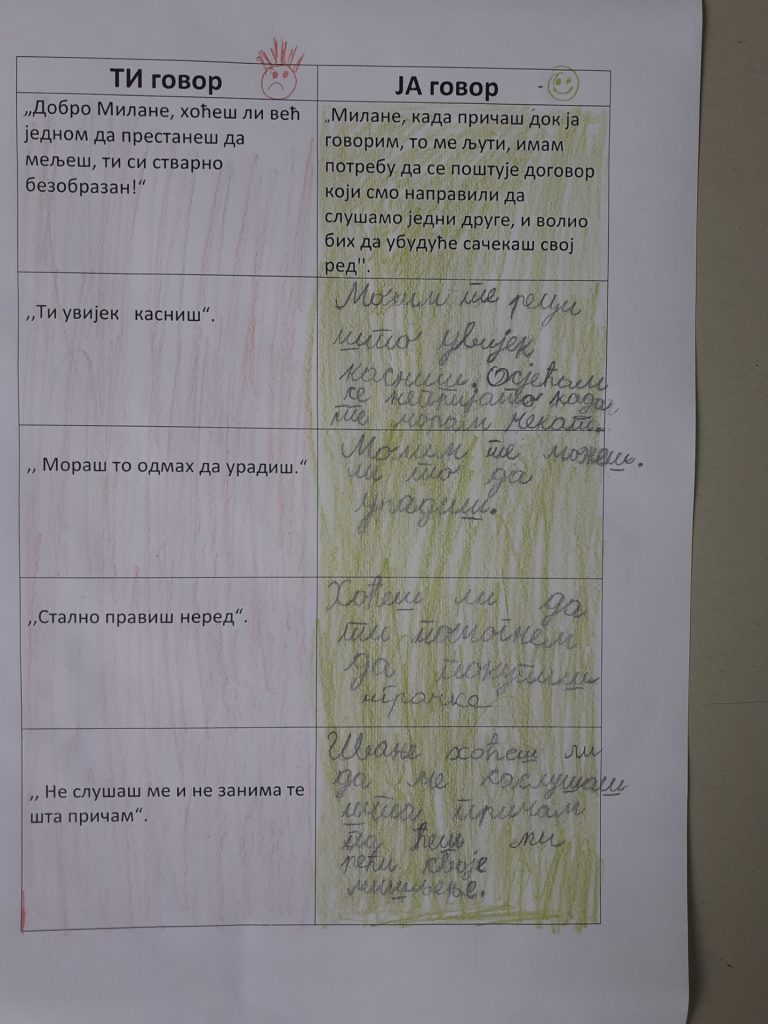 ТИ говор
ЈА говор -
„Добро Милане, хоћеш ли већ
једном да престанеш да
мељеш, ти си стварно
безобразан!“
„Милане, када причаш док ја
говорим, то ме љути, имам
потребу да се поштује договор
који смо направили да
слушамо једни друге, и волио
бих да убудуће сачекаш свој
ред".
,,Ти увијек касниш“.
Молим те реци
што увијек
касниш. Осјећам
се непријато када
те морам чекати.
,, Мораш то одмах да урадиш.“
Молим те можеш.
ли то да
урадиш.
,,Стално правиш неред“.
Хоћеш ли да
ти помогнем
да покупиш
играчке
,, Не слушаш ме и не занима те
шта причам“.
Иване хоћеш ли
да ме саслушаш
шта причам
па ћеш ми
рећи своје
мишљење.